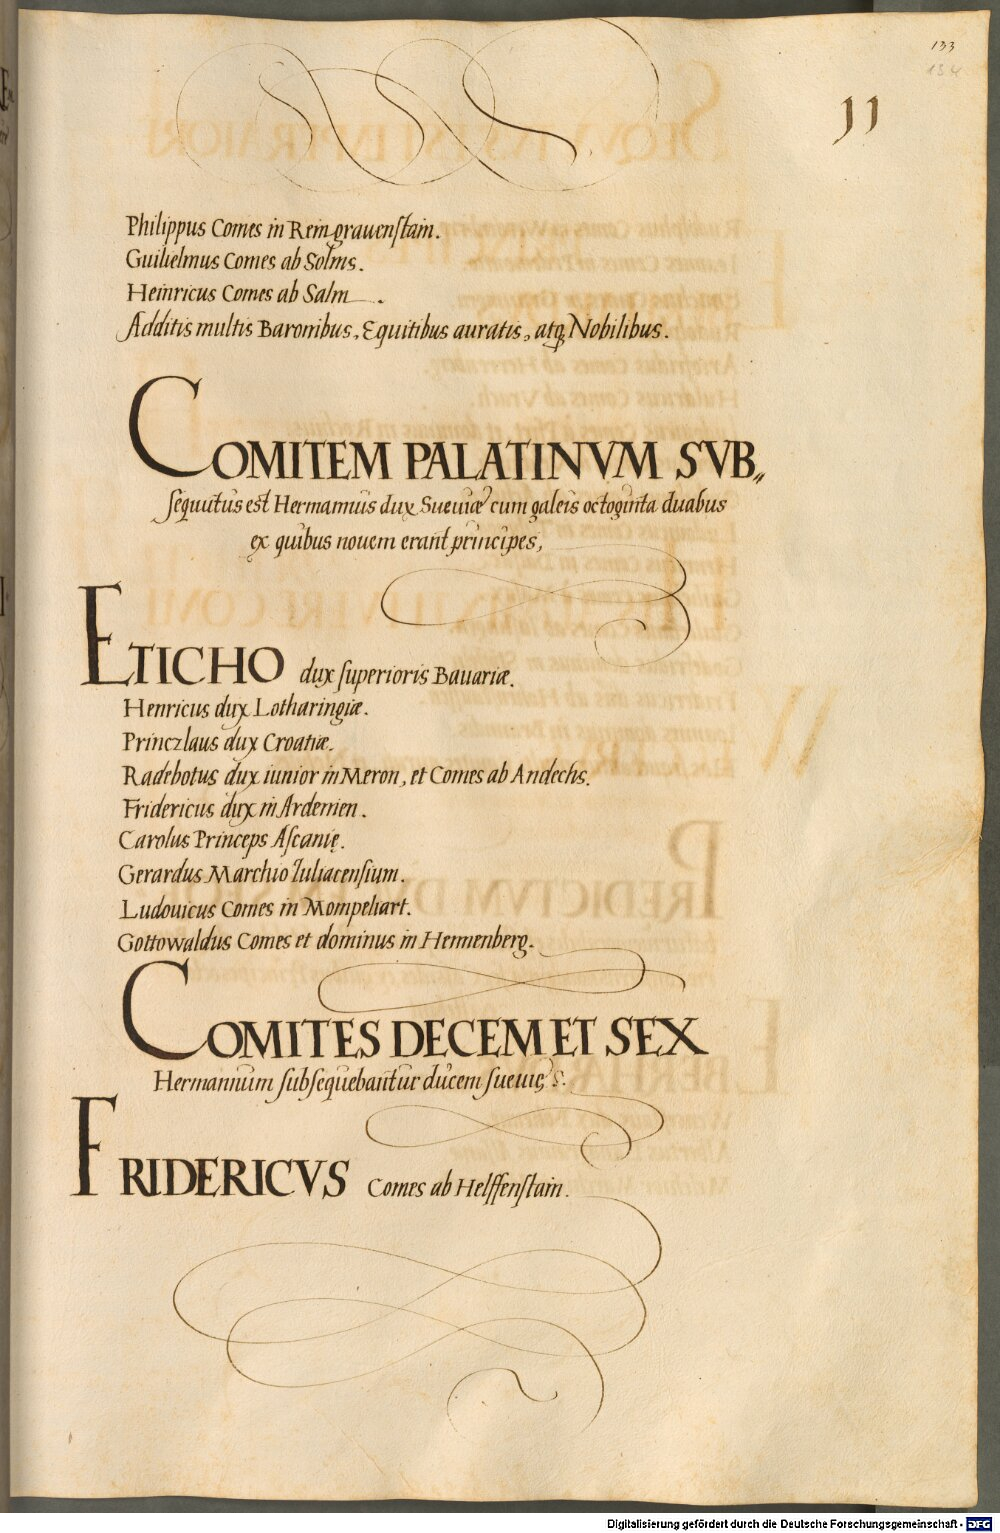 133
134
11
Philippus Comes in Reingrauenstain.
Guilielmus Comes ab Solms.
Heinricus Comes ab Salm.
Additis multis Baronibus, Equitibus auratis, atq Nobilibus.
COMITEM PALATINVM SVB„
sequutus est Hermannus dux Sueuiæ cum galeis octoginta duabus
ex quibus nouem erant principes,
ETICHO dux superioris Bauariæ.
Henricus dux Lotharingiæ.
Princzlaus dux Croatiæ.
Radebotus dux iunior in Meron, et Comes ab Andechs.
Fridericus dux in Ardennen.
Carolus Princeps Ascanię.
Gerardus Marchio Iuliacensium.
Ludouicus Comes in Mompeliart.
Gottowaldus Comes et dominus in Hennenberg.
COMITES DECEM ET SEX
Hermannum subsequebantur ducem sueuię
FRIDERICVS Comes ab Helffenstain.
Digitalisierung gefördert durch die Deutsche Forschungsgemeinschaft - DFG